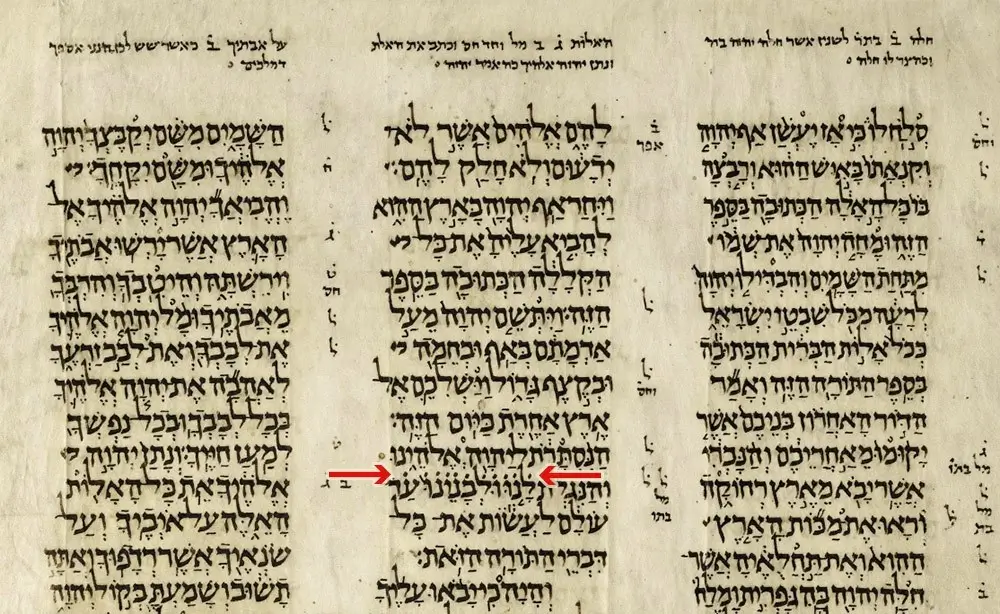 חלה ב̇ בתר̇ לשנין אשר חלה יהוה בה
סְלֹחַ לוֹ כִּי אָז יֶעְשַׁן אַף יְהוָה
וְקִנְאָתוֹ בָּאִישׁ הַהוּא וְרָבְצָה
בּוֹ כָּל הָאָלָה הַכְּתוּבָה בַּסֵּפֶר
הַזֶּה וּמָחָה יְהוָה אֶת שְׁמוֹ
מִתַּחַת הַשָּׁמָיִם׃ וְהִבְדִּילוֹ יְהוָה
לְרָעָה מִכֹּל שִׁבְטֵי יִשְׂרָאֵל
כְּכֹל אָלוֹת הַבְּרִית הַכְּתוּבָה
בְּסֵפֶר הַתּוֹרָה הַזֶּה׃ וְאָמַר
הַדּוֹר הָאַחֲרוֹן בְּנֵיכֶם אֲשֶׁר
יָקוּמוּ מֵאַחֲרֵיכֶם וְהַנָּכְרִי
אֲשֶׁר יָבֹא מֵאֶרֶץ רְחוֹקָה
וְרָאוּ אֶת מַכּוֹת הָאָרֶץ
הַהִוא וְאֶת תַּחֲלֻאֶיהָ אֲשֶׁר
חִלָּה יְהוָה בָּהּ׃ גָּפְרִית וָמֶלַח
האלות ג̇ ב̇ מל וחד חס וכתב את האלת
ונתן יהוה אלהיך כה אמר יהוה
לָהֶם אֱלֹהִים אֲשֶׁר לֹא
יְדָעוּם וְלֹא חָלַק לָהֶם׃
וַיִּחַר אַף יְהוָה בָּאָרֶץ הַהִוא
לְהָבִיא עָלֶיהָ אֶת כָּל
הַקְּלָלָה הַכְּתוּבָה בַּסֵּפֶר
הַזֶּה׃ וַיִּתְּשֵׁם יְהוָה מֵעַל
אַדְמָתָם בְּאַף וּבְחֵמָה
וּבְקֶצֶף גָּדוֹל וַיַּשְׁלִכֵם אֶל
אֶרֶץ אַחֶרֶת כַּיּוֹם הַזֶּה׃
הַנִּסְתָּרֹת לַיהוָה אֱלֹהֵינוּ
וְהַנִּגְלֹת לָׄנׄוּׄ וּׄלְׄבָׄנֵׄיׄנׄוּׄ עַׄד
עוֹלָם לַעֲשׂוֹת אֶת כָּל
דִּבְרֵי הַתּוֹרָה הַזֹּאת׃
וְהָיָה כִי יָבֹאוּ עָלֶיךָ
על אבתיך ב̇ כאשר שש לכן הנני אספך
דמלכים
הַשָּׁמָיִם מִשָּׁם יְקַבֶּצְךָ יְהוָה
אֱלֹהֶיךָ וּמִשָּׁם יִקָּחֶךָ׃
וֶהֱבִיאֲךָ יְהוָה אֱלֹהֶיךָ אֶל
הָאָרֶץ אֲשֶׁר יָרְשׁוּ אֲבֹתֶיךָ
וִירִשְׁתָּהּ וְהֵיטִבְךָ וְהִרְבְּךָ
מֵאֲבֹתֶיךָ׃ וּמָל יְהוָה אֱלֹהֶיךָ
אֶת לְבָבְךָ וְאֶת לְבַב זַרְעֶךָ
לְאַהֲבָה אֶת יְהוָה אֱלֹהֶיךָ
בְּכָל לְבָבְךָ וּבְכָל נַפְשְׁךָ
לְמַעַן חַיֶּיךָ׃ וְנָתַן יְהוָה
אֱלֹהֶיךָ אֵת כָּל הָאָלוֹת
הָאֵלֶּה עַל אֹיְבֶיךָ וְעַל
שֹׂנְאֶיךָ אֲשֶׁר רְדָפוּךָ׃ וְאַתָּה
תָשׁוּב וְשָׁמַעְתָּ בְּקוֹל יְהוָה